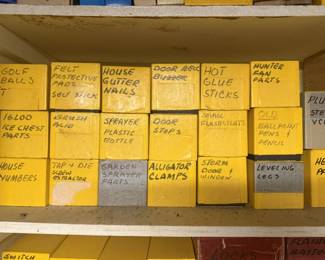 GOLF
BALLS
FELT
PROTECTIVE
PADS
SELF STICK
HOUSE
GUTTER
NAILS
DOOR BELL
BUZZER
HOT
GLUE
STICKS
HUNTER
FAN
PARTS
IGLOO
ICE CHEST
PARTS
SPRAYER
PLASTIC
BOTTLE
DOOR
STOPS
SMALL
FLASHLIGHTS
OLD
BALLPOINT
PENS &
PENCIL
HOUSE
NUMBERS
TAP & DIE
SCREW
EXTRACTOR
GARDEN
SPRAYER
PARTS
ALLIGATOR
CLAMPS
STORM
DOOR &
WINDOW
LEVELING
LEGS
SWITCH